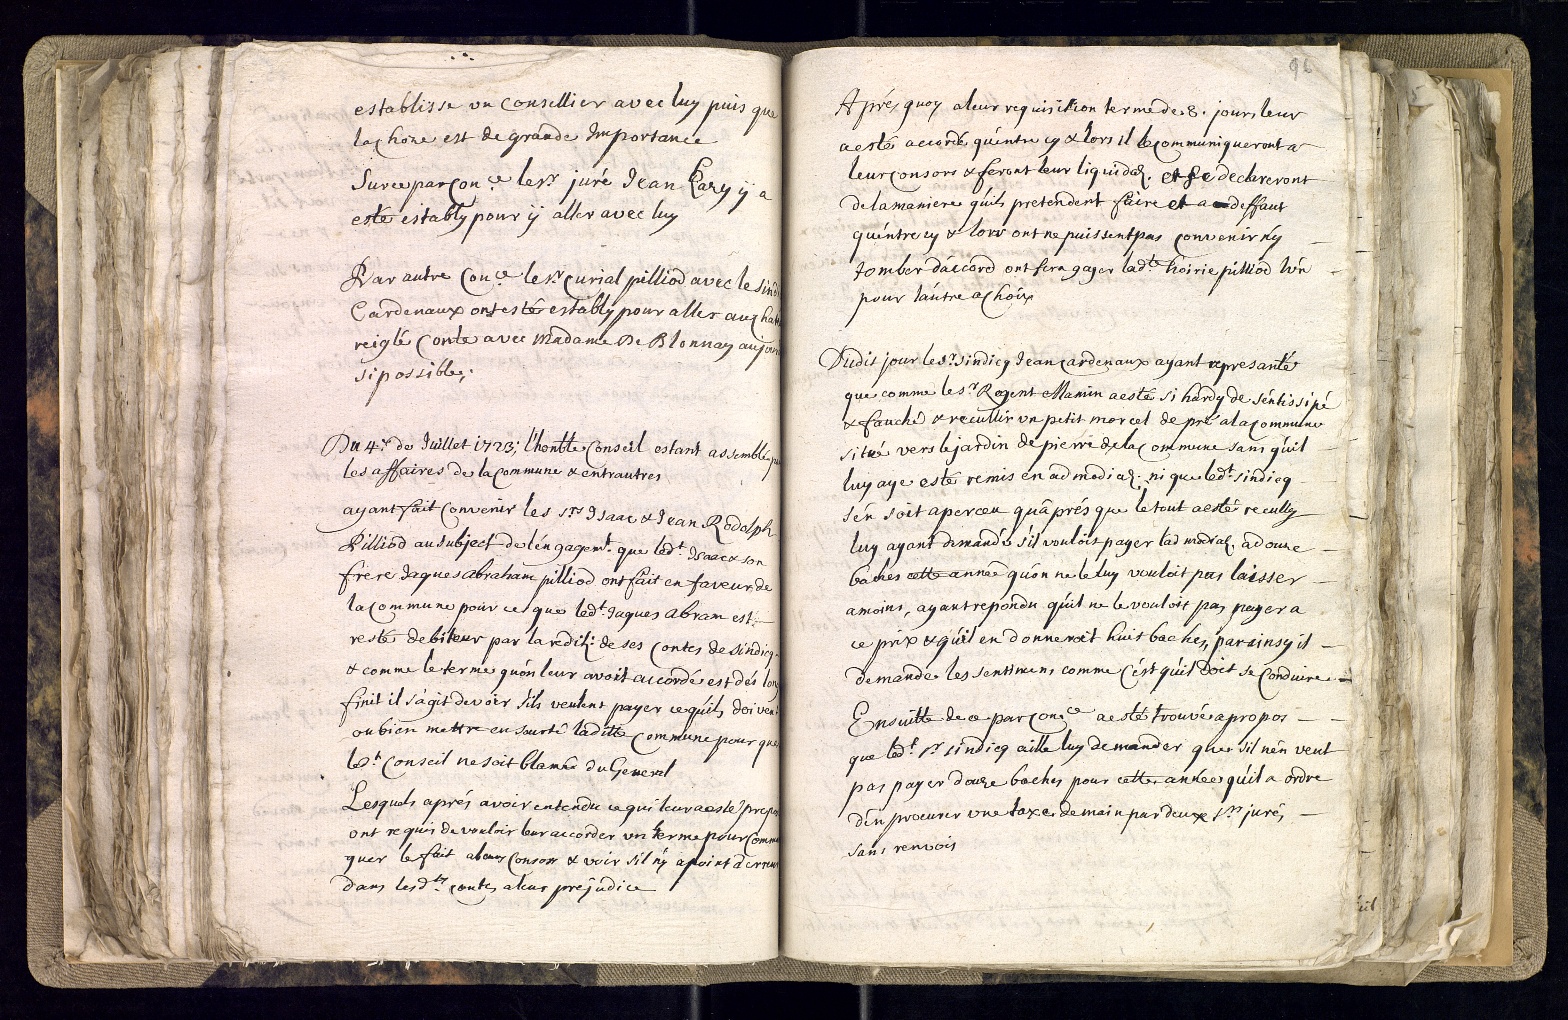 establisse un conseillier avec luy puis que
la chose est de grande Importance
Sur ce par Con.ce le sr. juré Jean Cary ÿ a
esté establÿ pour ÿ aller avec luy
Par autre Con.ce le sr. curial pilliod avec le sind
Cardenaux ont esté estably pour aller au chat
reiglé conte avec Madame De Blonnay
si possible;
Du 4.e de Juillet 1723; l'honble Conseil estant assemblé
les affaires de la commune & entrautres
ayant fait Convenir les srs Isaac & Jean Rodolph
Pilliod au Subject de l'éngagemt. que ledt. Isaac & son
frère Jaques Abraham pilliod ont fait en faveur de
la Commune pour ce que ledt. Jaques Abram est
resté debiteur par la reditt: de ses Contes de sindicq
& comme le terme qu'on leur avoit accordé est dés long
finit il s'agit de voir s'ils veulent payer ce qu'ils doivent
ou bien mettre en seurté laditte Commune pour que
let. Conseil ne soit blamé du General
Lesquels aprés avoir entendu ce qui leur a esté
ont requis de vouloir leur accorder un terme pour Commu
quer le fait a leurs Consors & voir s'il n'ÿ a point d'erreur
dans lesdts. contes a leur prejudice
96
Aprés quoy a leur requisition terme de 8. jours leur
a esté accordé qu'entre cy & lors il le communiqueront a
leur Consors & feront leur liquida~. et se declareront
de la maniere qu'ils pretendent faire et a deffaut
qu'entre cy & lors ont ne puissent pas Convenir n'y
tomber d'accord ont fera gager ladte hoirie pilliod l'un
pour l'autre a choix
Dudit jour le sr. sindicq Jean Cardenaux ayant represanté
que comme le sr. Regent Mamin a esté si hardy de
& fauché & recullir un petit morcel de pré a la Commune
situé vers le jardin de pierre de la Commune sans qu'il
luy aye esté remis en admodia~; ni que ledt. sindicq
s'en soit aperceu qu'aprés que le tout a esté recully
luy ayant demandé s'il vouloit payer ladmodia~ a douze
baches cette année qu'on ne le luy vouloit pas laisser
a moins, ayant repondu qu'il ne le vouloit pas payer a
ce prix & qu'il en donneroit huit baches, par ainsy il
demande les sentimens comme C'est qu'il Doit se Conduire
Ensuitte de ce par Con.ce a esté trouvé a propos
que ledt. sr. sindicq aille luy demander que s'il n'en veut
pas payer douze baches pour cette année qu'il a ordre
d'en procurer une taxe demain par deux srs jurés
sans renvois